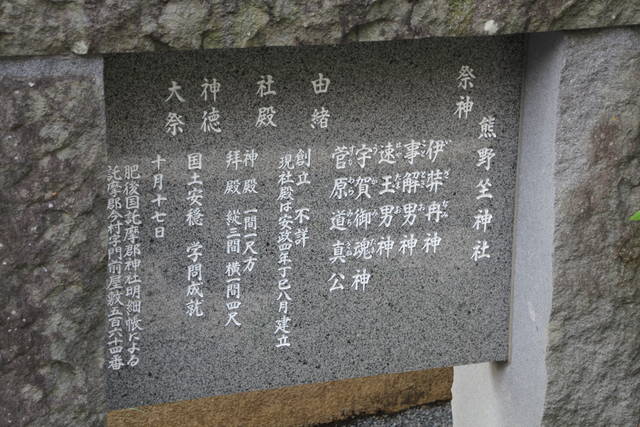 熊野坐神社
祭神
伊弉冉神
事解男神
速玉男神
宇賀御魂神
菅原道真公
由緒
創立 不詳
現社殿は安政四年丁巳八月建立
社殿
神殿 一間二尺方
拝殿 縦三間 横一間四尺
神徳
国土安穏 学問成就
大祭
十月十七日
肥後国託摩郡神社明細帳による
託摩郡今村字門前屋敷五百六十四番